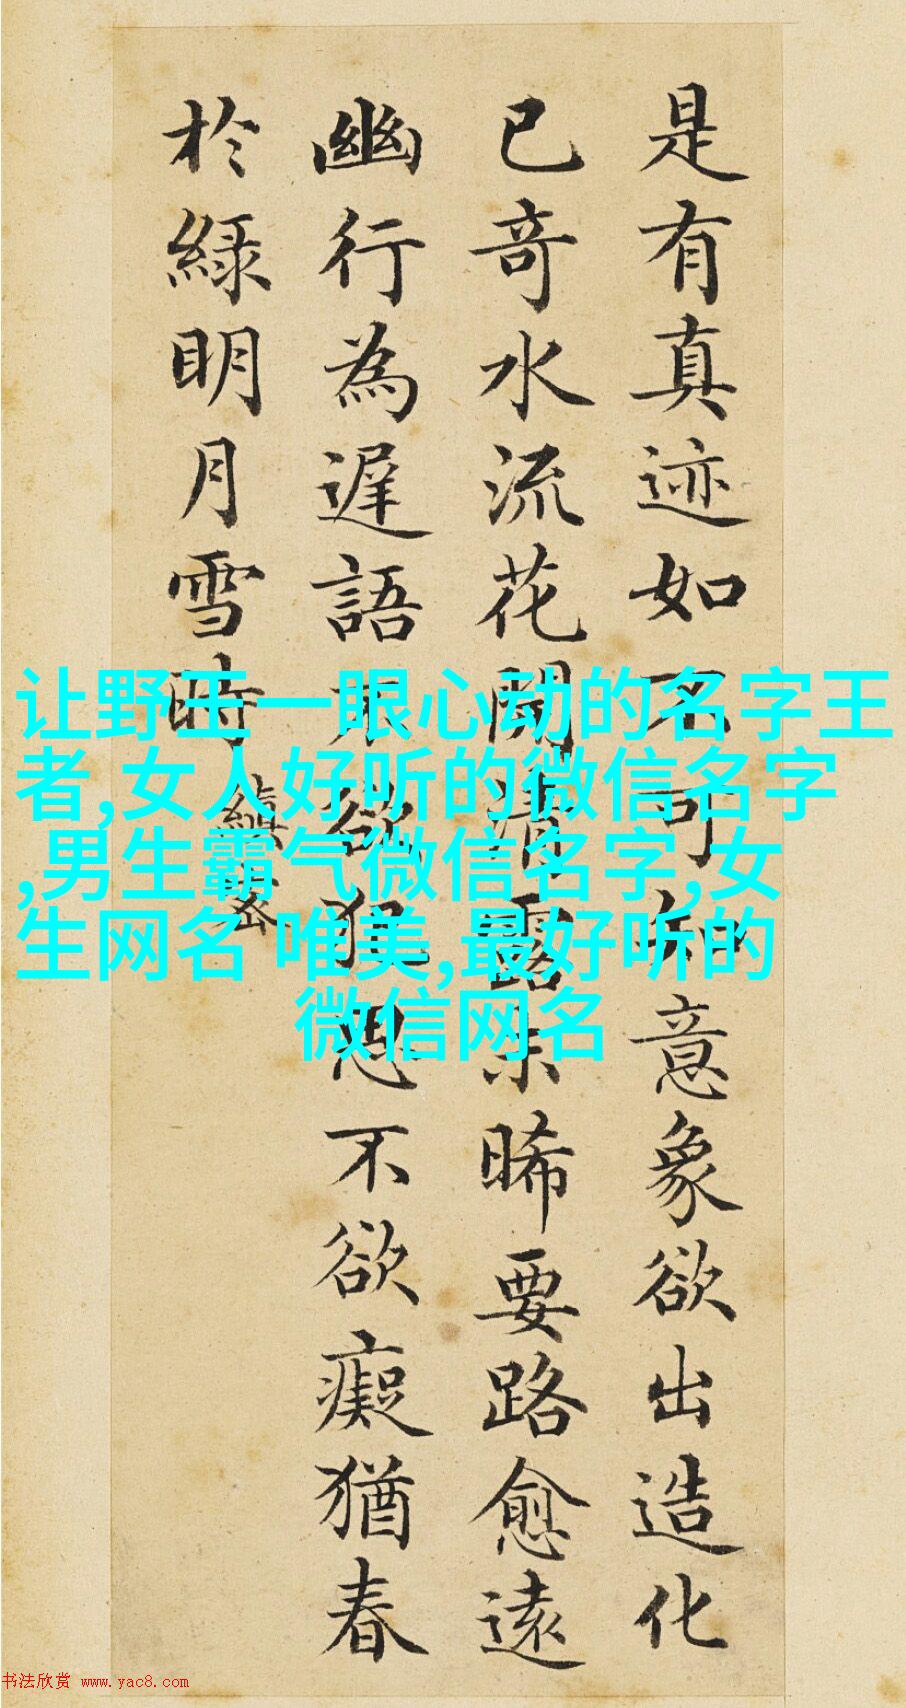 是有真迹如不可知意象欲出造化
已奇水流花開清露未晞要路愈遠
幽行為遲語不欲犯思不欲癡猶春
於綠明月雪時
縝密
让野王一眼心动的名字王
者,女人好听的微信名字
,男生霸气微信名字,女
生网名 唯美,最好听的
微信网名
书法欣赏 www.yac8.com